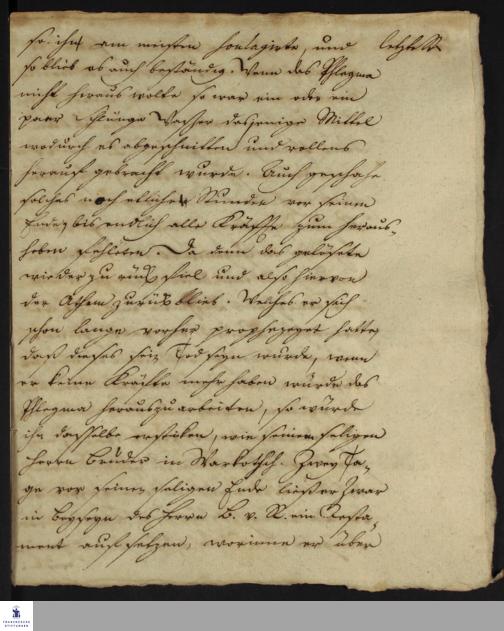 so ihn am meisten soulagirte, und letzte R
so blieb es auch beständig. Wenn das Phlegma
nicht heraus wolte so war ein oder ein
paar Schlünge Wasser dasjenige Mittel
wodurch es abgeschnitten und vollens
herauf gebracht wurde. Auch geschahe
solches noch etliche Stunden vor seinem
Ende, bis endlich alle Kräffte zum heraus-
heben fehleten. Da denn das gelösete
wieder zurük fiel und also hiervon
der Athem zurük blieb. Welches er sich
schon lange vorher prophezeyet hatte
daß dieses sein Tod seyn würde, wenn
er keine Kräfte mehr haben würde das
Phlegma herauszuarbeiten, so würde
ihn dasselbe ersticken, wie seinen seligen
Herrn Bruder in Warkotsch. Zwey Ta-
ge vor seinem seligen Ende ließ er zwar
in Beyseyn des Herrn B. v. R. ein Testa-
ment aufsetzen, worinne er über
FRANCKESCHE STIFTUNGEN